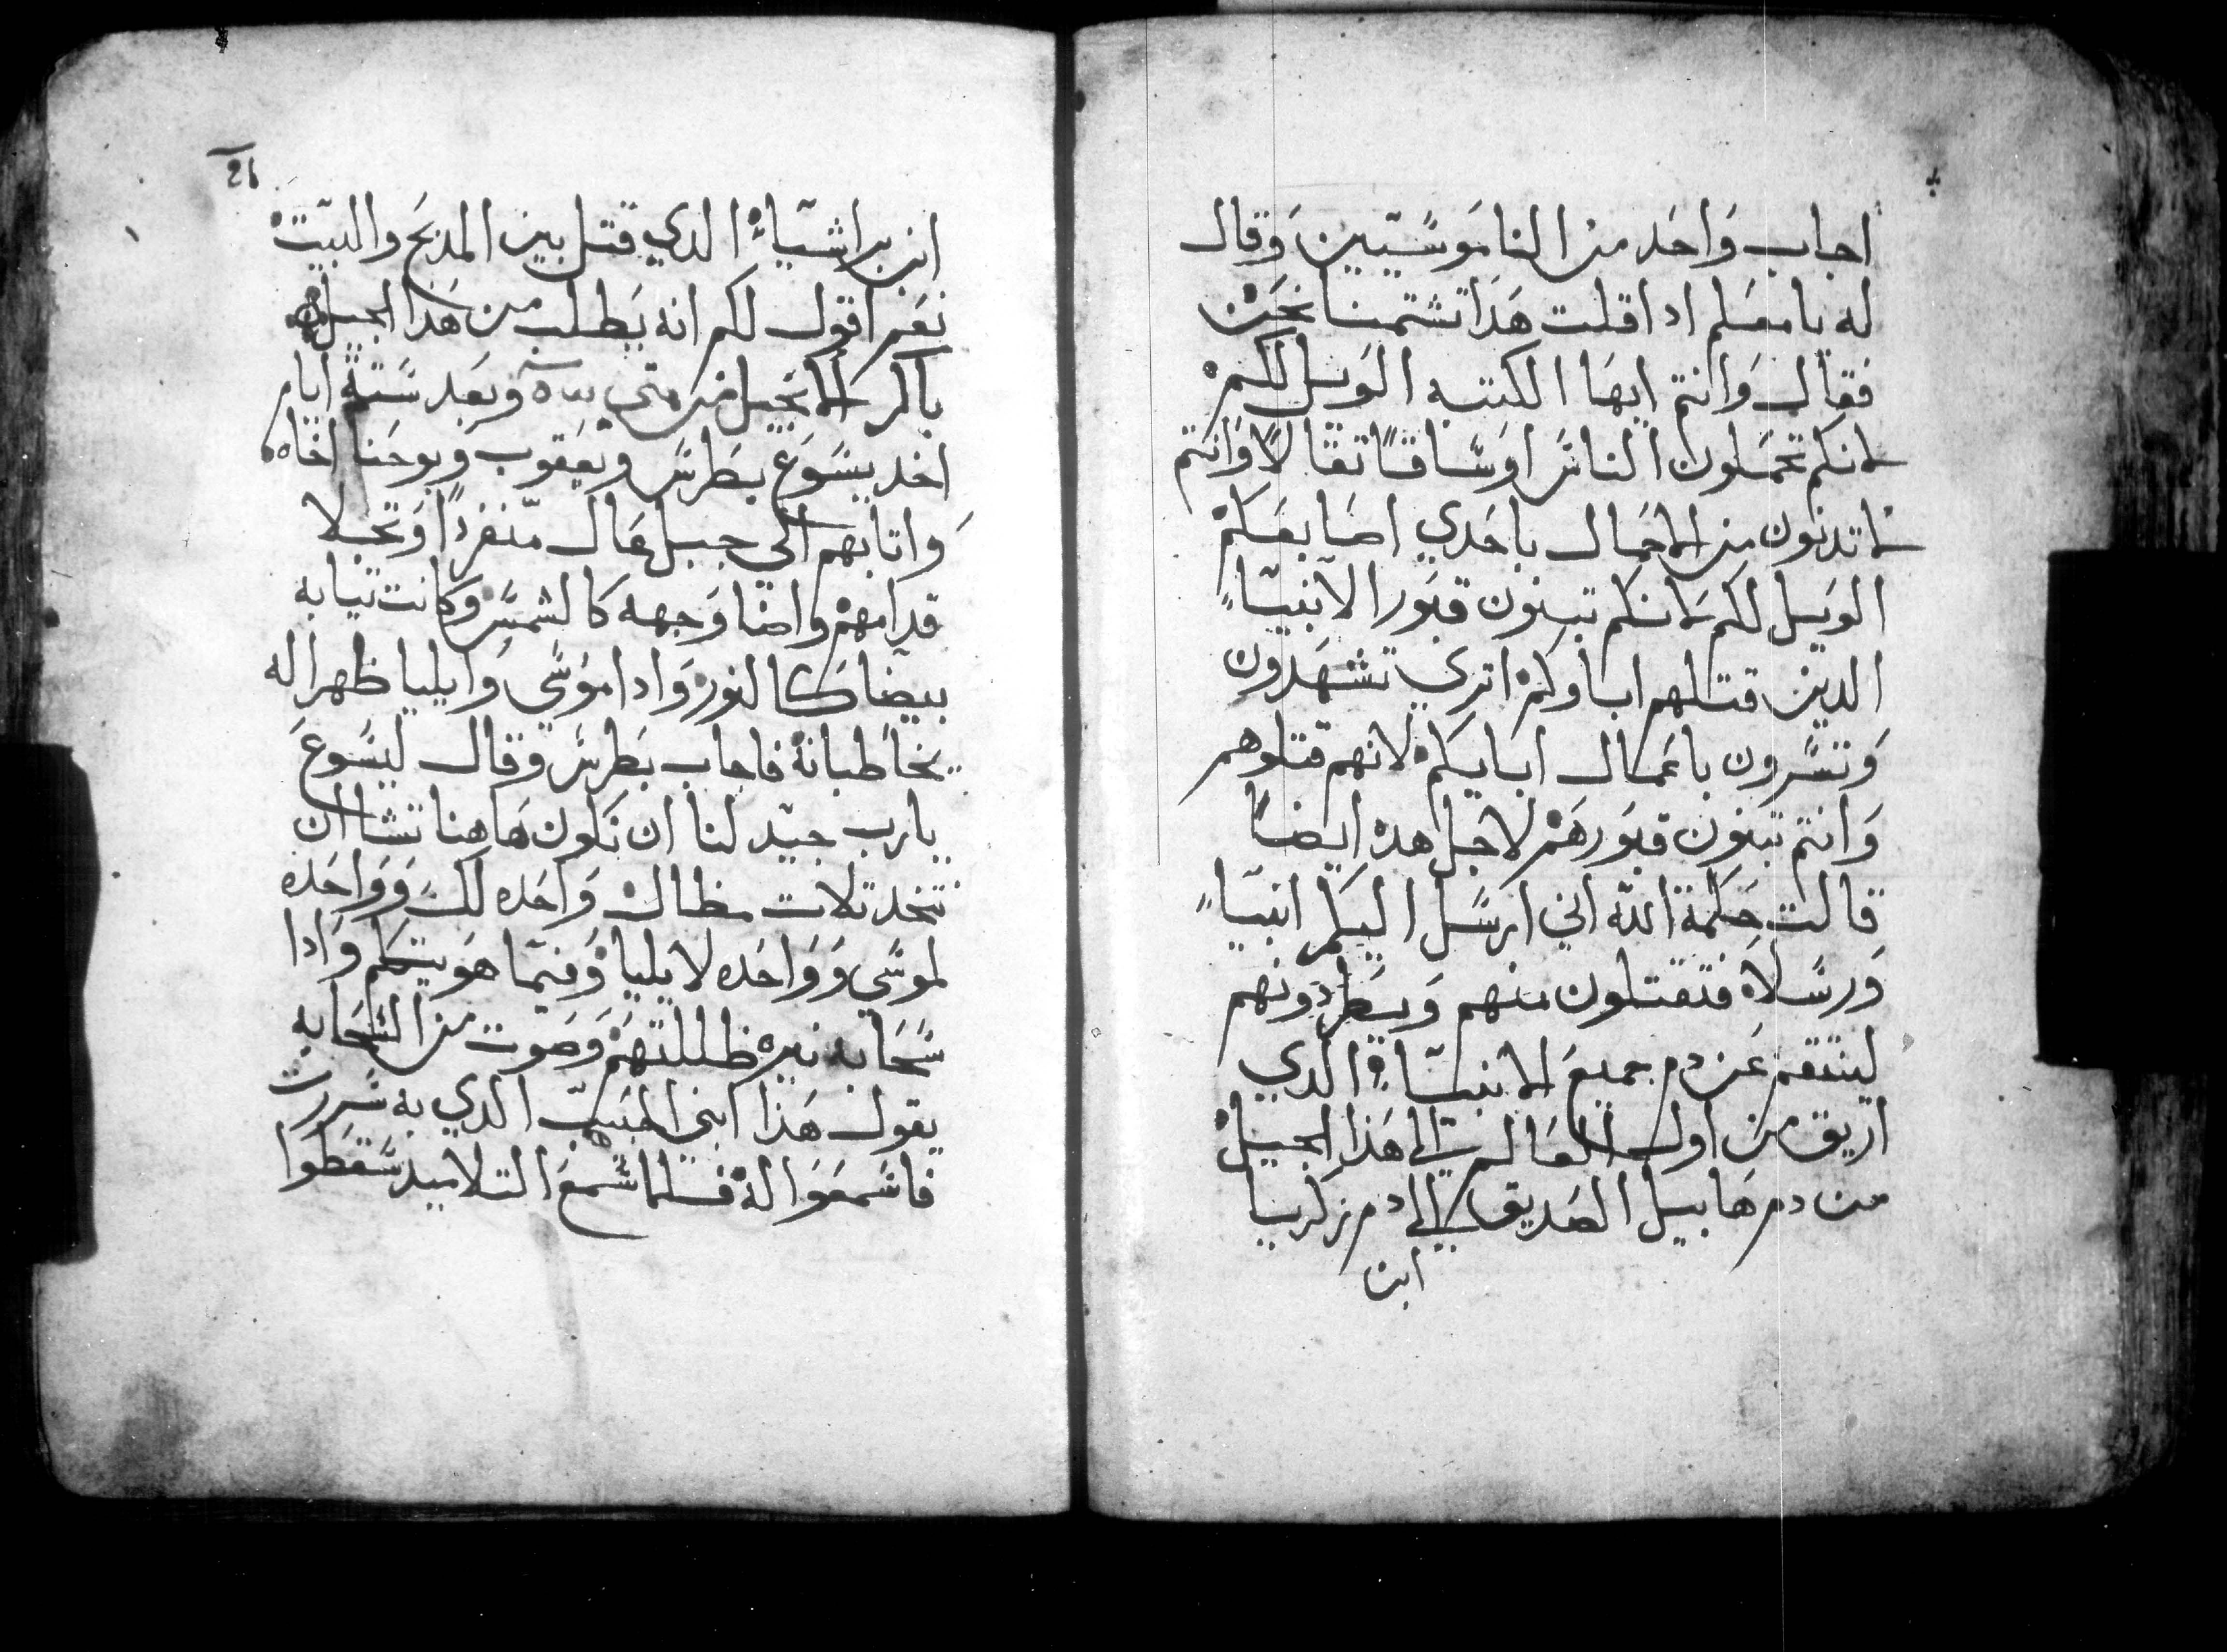 اجاب وَاحَد من الناموَسَيين وَقال
له يا معَلم ادا قلت هَدَا تشتمنا نحَن
فقال وَانتم ايهَا الكتبه الوَيل لكم
لانكم تحمَلون الناسَ اوسَاقاً تقالاً وَانتم
لا تدنون من الاحمَال باحَدي اصَابعَكم
الوَيل لكم لانكم تبنون قبَور الانبيَاءِ
الدين قتلهم اباوكم اتري تشهَدون
وَتسَرون باعمَال ابايكم لانهم قتلوهم
وَانتم تبنون قبَورهَم لاجل هده ايضاً
قالت حِكمة الله اني ارسَل اليكم انبياً
وَرسَلاً فتقتلون منهم وَيطردونهم
لينتقم عَن دم جميع الانبيَاءِ الدي
اريق من اول العَالم الي هَذا الجيل
من دم هَابيل الصَديق الي دم زكريا
ابن
26
ابن براشيَاءِ الدي قتل بين المدبَح والبيت
نعَم اقول لكم انه يَطلب من هَدا الجيل
باكر الانجيل من متي وبعَد سَتة ايام
اخد يسَوع بطرسَ ويعقوب وَيوحَنا اخاه
وَاتا بهم الي جبل عَال منفرداً وَتجلا
قدامهم واضا وَجهه كالشمسَ وكانت تيابه
بيضا كالنور وَادا موَسَي وَايليا ظهرا له
يخاطبانه فاجاب بطرسَ وقال ليسَوعَ
يارب جيد لنا ان نكون هَاهنا تشا ان
نتخد تلات مظال وَاحَده لك وَوَاحَده
لموسَي وَوَاحَده لايليا وَفيما هوَ يتكلم وَادا
سَحَابه نيره ظللتهَم وَصَوت من السَحَابه
يقول هَذا ابني الحبيب الدي به سَررت
فاسَمعَوَا له فلما سَمعَ التلاميد سَقطوا